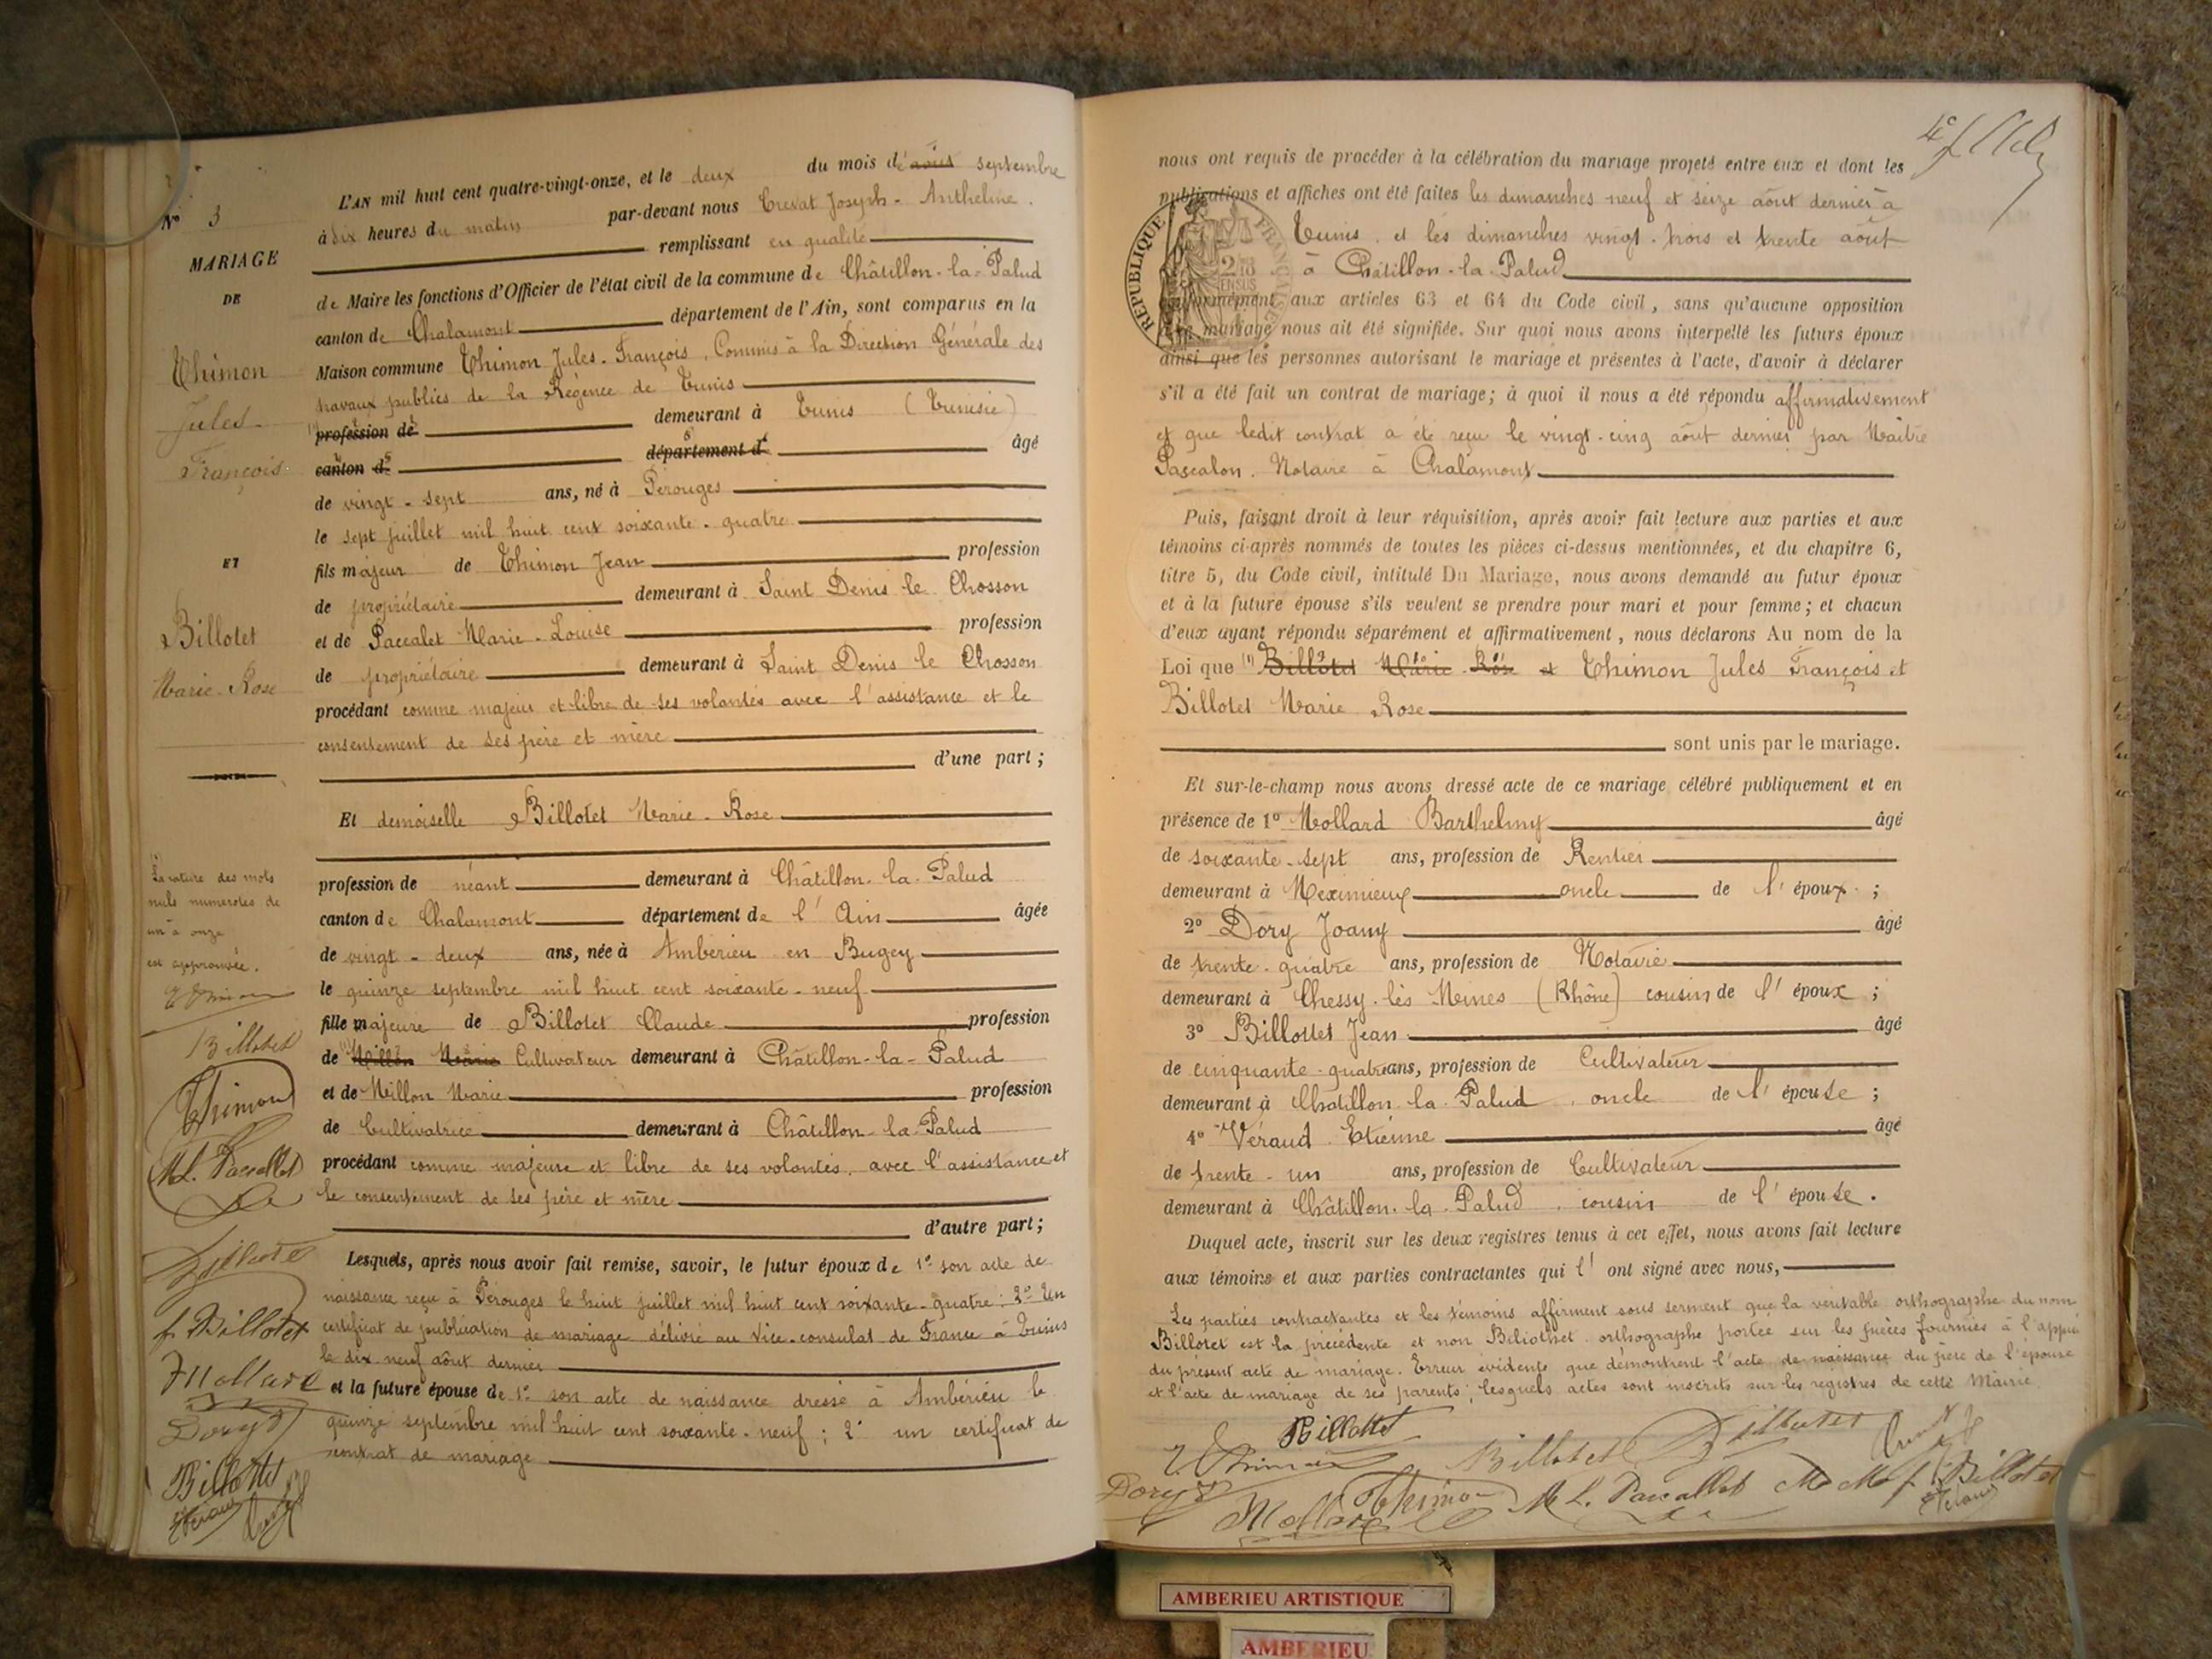 N° 3
MARIAGE
DE
Thimon
Jules
François
ET
Billotet
Marie-Rose
La rature des mots
nuls numérotés de
un à onze
est approuvée.
Billotet
Thimon
M L. Paccallet
Billotet
f Billotet
Mollard
Dory
Billottet
Veraud
L'AN mil huit cent quatre-vingt-onze, et le deux du mois d'août septembre
à dix heures du matin par-devant nous Crevat Joseph-Anthelme.
remplissant en qualité
de Maire les fonctions d'Officier de l'état civil de la commune de Châtillon-la-Palud
canton de Chalamont département de l'Ain, sont comparus en la
Maison commune Thimon Jules-François, Commis à la Direction Générale des
travaux publics de la Régence de Tunis
profession de demeurant à Tunis (Tunisie)
canton d département d âgé
de vingt-sept ans, né à Pérouges
le sept juillet mil huit cent soixante-quatre
fils majeur de Thimon Jean profession
de propriétaire demeurant à Saint Denis le Chosson
et de Paccalet Marie-Louise profession
de propriétaire demeurant à Saint Denis le Chosson
procédant comme majeur et libre de ses volontés avec l'assistance et le
consentement de ses père et mère
d'une part ;
Et demoiselle Billotet Marie-Rose
profession de néant demeurant à Châtillon-la-Palud
canton de Chalamont département de l'Ain âgée
de vingt-deux ans, née à Ambérieu en Bugey
le quinze septembre mil huit cent soixante-neuf
fille majeure de Billotet Claude profession
de Millon Marie Cultivateur demeurant à Châtillon-la-Palud
et de Millon Marie profession
de Cultivatrice demeurant à Châtillon-la-Palud
procédant comme majeure et libre de ses volontés, avec l'assistance et
le consentement de ses père et mère
d'autre part ;
Lesquels, après nous avoir fait remise, savoir, le futur époux de 1° son acte de
naissance reçu à Pérouges le huit juillet mil huit cent soixante-quatre ; 2° Un
certificat de publication de mariage délivré au Vice-consulat de France à Tunis
le dix-neuf août dernier
et la future épouse de 1° son acte de naissance dressé à Ambérieu le
quinze septembre mil huit cent soixante-neuf ; 2° un certificat de
contrat de mariage
4e
nous ont requis de procéder à la célébration du mariage projeté entre eux et dont les
publications et affiches ont été faites les dimanches neuf et seize août dernier à
Tunis, et les dimanches vingt-trois et trente août
à Châtillon-la-Palud
RÉPUBLIQUE FRANÇAISE
conformément aux articles 63 et 64 du Code civil, sans qu'aucune opposition
mariage nous ait été signifiée. Sur quoi nous avons interpellé les futurs époux
ainsi que les personnes autorisant le mariage et présentes à l'acte, d'avoir à déclarer
s'il a été fait un contrat de mariage ; à quoi il nous a été répondu affirmativement
et que ledit contrat a été reçu le vingt-cinq août dernier par Maître
Pascalon, Notaire à Chalamont
Puis, faisant droit à leur réquisition, après avoir fait lecture aux parties et aux
témoins ci-après nommés de toutes les pièces ci-dessus mentionnées, et du chapitre 6,
titre 5, du Code civil, intitulé Du Mariage, nous avons demandé au futur époux
et à la future épouse s'ils veulent se prendre pour mari et pour femme ; et chacun
d'eux ayant répondu séparément et affirmativement, nous déclarons Au nom de la
Loi que Billotet Marie Rose et Thimon Jules François et
Billotet Marie Rose
sont unis par le mariage.
Et sur-le-champ nous avons dressé acte de ce mariage célébré publiquement et en
présence de 1° Mollard Barthelmy âgé
de soixante-sept ans, profession de Rentier
demeurant à Meximieux oncle de l'époux ;
2° Dory Joany âgé
de trente-quatre ans, profession de Notaire
demeurant à Chessy-lès-Mines (Rhône) cousin de l'époux ;
3° Billottet Jean âgé
de cinquante-quatre ans, profession de Cultivateur
demeurant à Chatillon-la-Palud, oncle de l'épouse ;
4° Véraud Etienne âgé
de trente-un ans, profession de Cultivateur
demeurant à Châtillon-la-Palud, cousin de l'épouse.
Duquel acte, inscrit sur les deux registres tenus à cet effet, nous avons fait lecture
aux témoins et aux parties contractantes qui l'ont signé avec nous,
Les parties contractantes et les témoins affirment sous serment que la véritable orthographe du nom
Billotet est la précédente et non Biliothet, orthographe portée sur les pièces fournies à l'appui
du présent acte de mariage. Erreur évidente que démontrent l'acte de naissance du père de l'épouse
et l'acte de mariage de ses parents ; lesquels actes sont inscrits sur les registres de cette Mairie.
Billottet
J. Thimon Billotet Billotet
Dory Thimon M L. Paccallet f Billotet
Mollard Veraud
AMBERIEU ARTISTIQUE
AMBERIEU